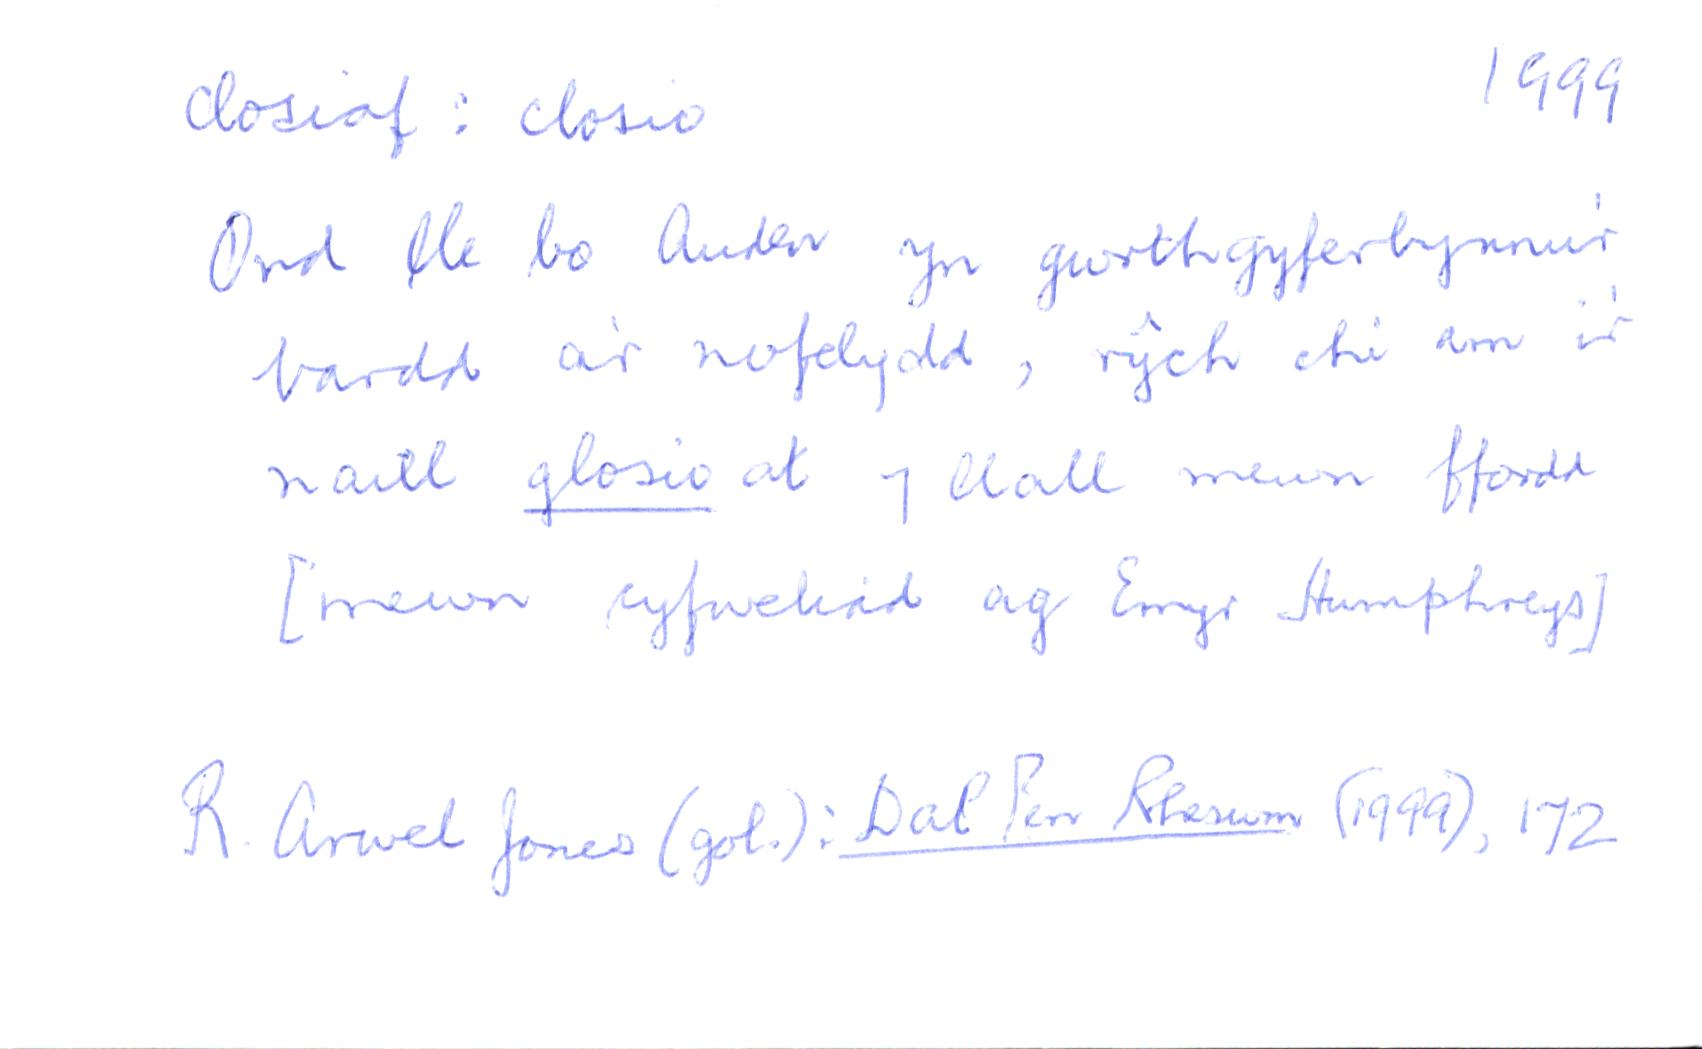 closiaf : closio 1999
Ond lle bo Auden yn gwrthgyferbynnu'r
bardd a'r nofelydd, rŷch chi am i'r
naill glosio at y llall mewn ffordd
[mewn cyfweliad ag Emyr Humphreys]
R. Arwel Jones (gol.): Dal Pen Rheswm (1999), 172